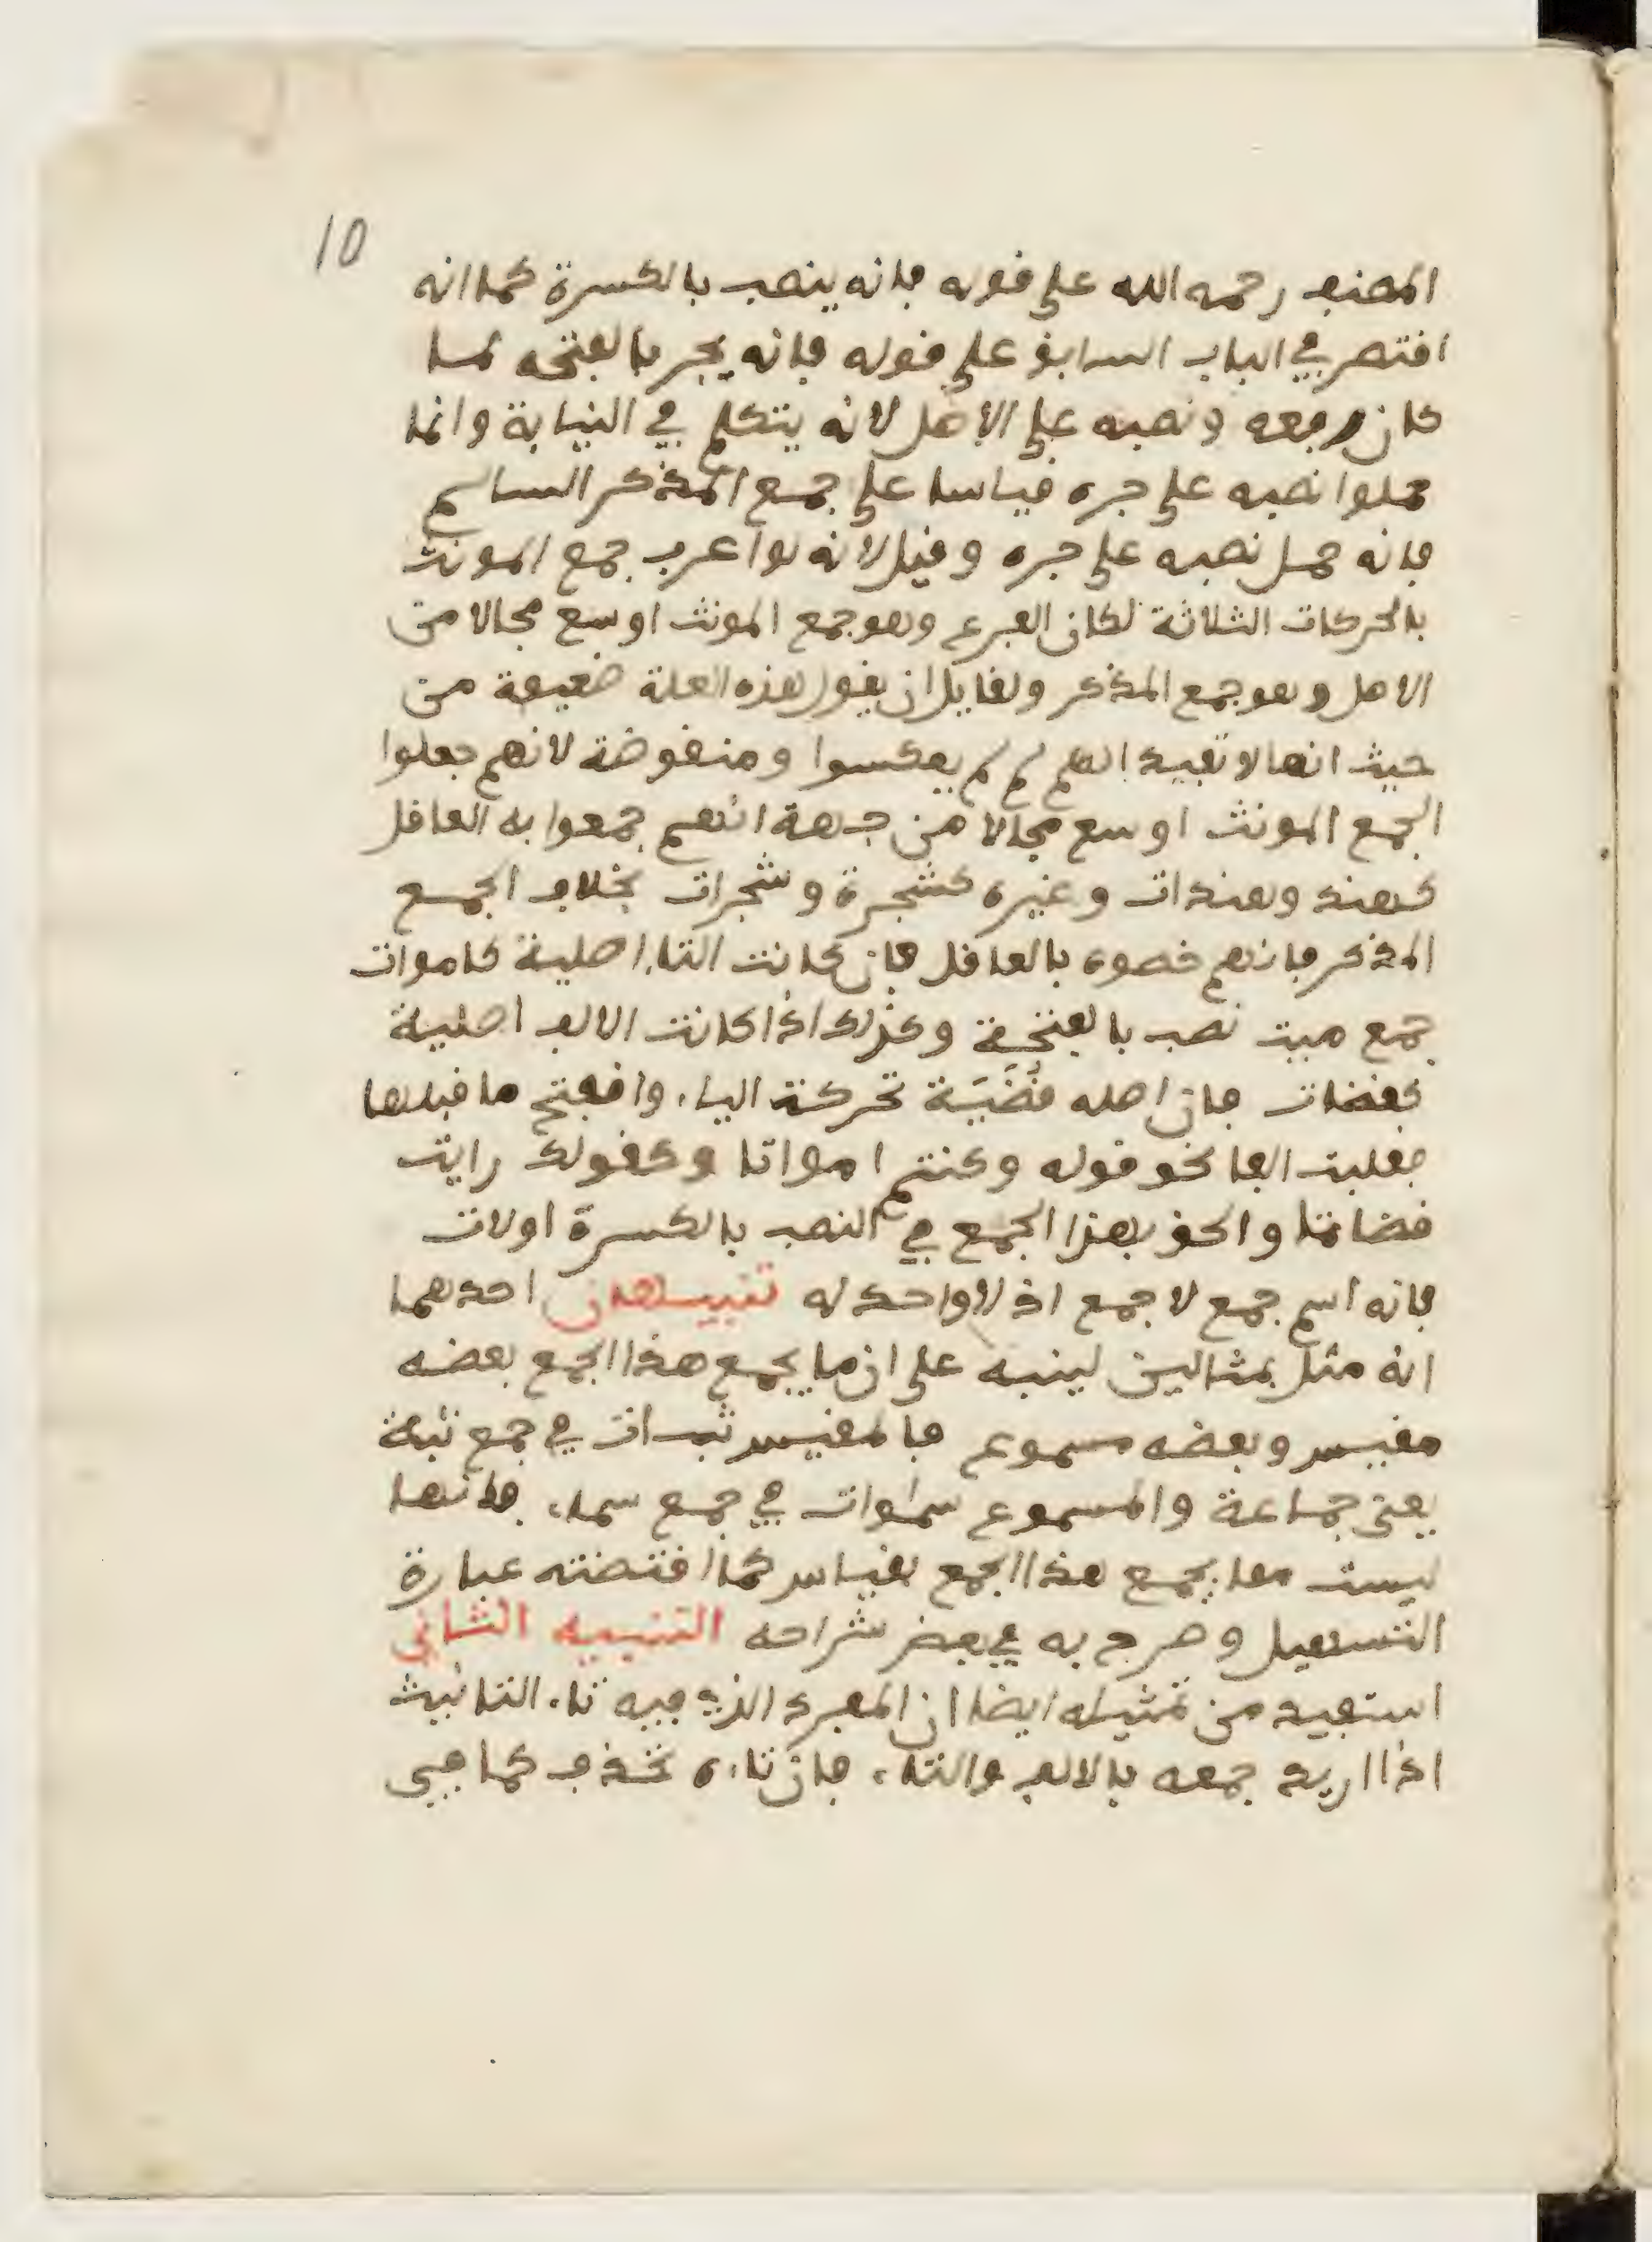 10
المصنف رحمه الله على قوله فانه ينصب بالكسرة كما انه
اقتصر في الباب السابق على قوله فانه يجر بالفتحه لما
كان رفعه ونصبه على الاصل لانه يتكلم في النيابة وانما
حملوا نصبه على جره قياسا على جمع المذكر السالم
فانه حمل نصبه على جره وقيل لانه لو اعرب جمع المونث
بالحركات الثلاثة لكان الفرع وهو جمع المونث اوسع مجالا من
الاصل وهو جمع المذكر ولقايل ان يقول هذه العلة ضعيفة من
حيث انها لا تفيد انهم لم لم يعكسوا ومنقوضة لانهم جعلوا
الجمع المونث اوسع مجالا من جهة انهم جمعوا به العاقل
كهند وهندات وغيره كشجرة وشجرات بخلاف الجمع
المذكر فانهم خصوه بالعاقل فان كانت التاء اصلية كاموات
جمع ميت نصب بالفتحة وكذلك اذا كانت الالف اصلية
كقضات فان اصله قُضَيَة تحركت الياء وانفتح ما قبلها
فقلبت الفا نحو قوله وكنتم امواتا وكقولك رايت
قضاتنا والحق بهذا الجمع في النصب بالكسرة اولات
فانه اسم جمع لا جمع اذ لا واحد له تنبيهان احدهما
انه مثل بمثالين لينبه على ان ما يجمع هذا الجمع بعضه
مقيس وبعضه مسموع فالمقيس ثبات في جمع ثبة
يعني جماعة والمسموع سماوات في جمع سماء فانها
ليست مما يجمع هذا الجمع بقياس كما اقتضته عبارة
التسهيل وصرح به في بعض شراحه التنبيه الثاني
استفيد من تمثيله ايضا ان المفرد الذي فيه تاء التانيث
اذا اريد جمعه بالالف والتاء فان تاءه تحذف كما في